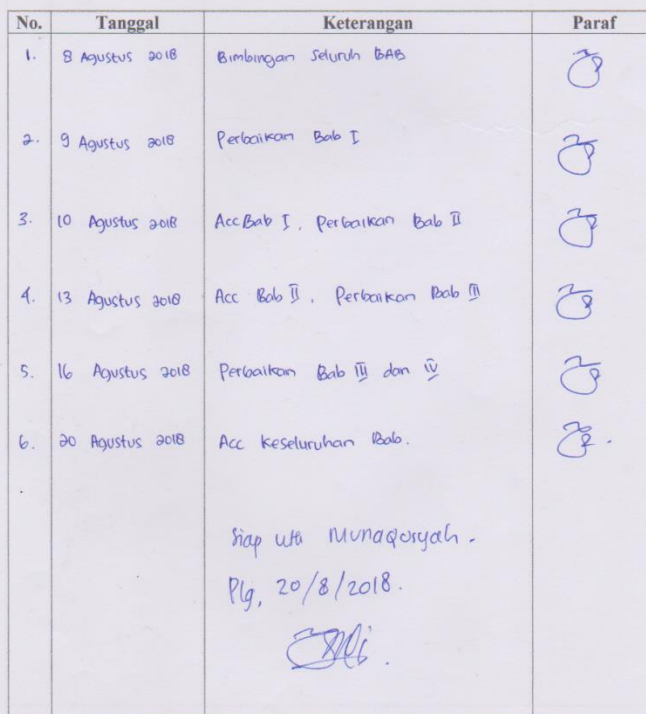 No. Tanggal Keterangan Paraf
1. 8 Agustus 2018 Bimbingan Seluruh BAB
2. 9 Agustus 2018 Perbaikan Bab I
3. 10 Agustus 2018 Acc Bab I, Perbaikan Bab II
4. 13 Agustus 2018 Acc Bab II, Perbaikan Bab III
5. 16 Agustus 2018 Perbaikan Bab III dan IV
6. 20 Agustus 2018 Acc Keseluruhan Bab.
Siap Munaqosyah.
Plg, 20/8/2018.